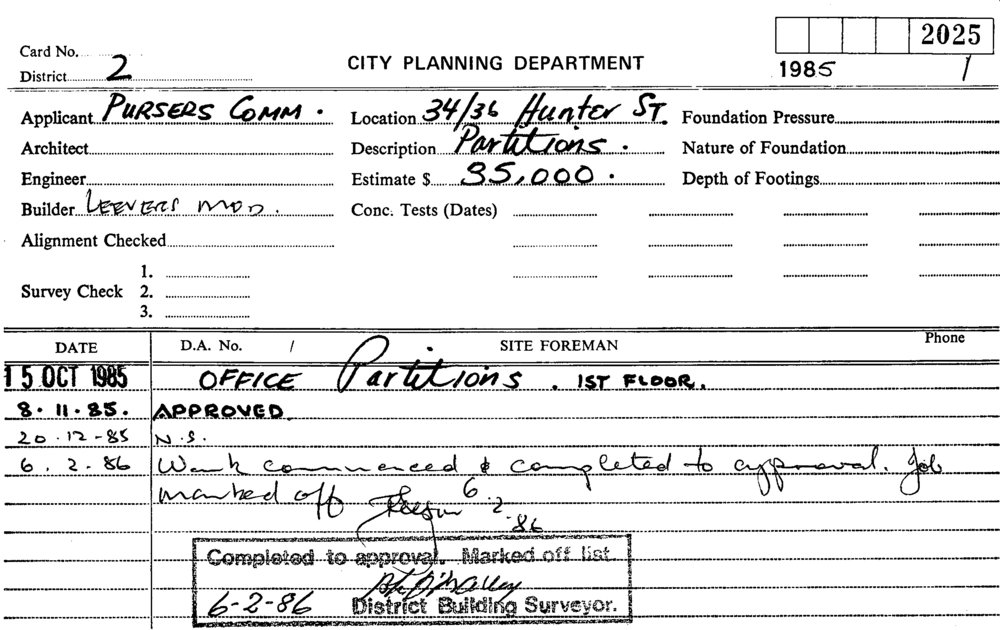 Card No.
2025
CITY PLANNING DEPARTMENT
District 2
1985 1
Applicant PURSERS COMM. Location 34/36 Hunter ST. Foundation Pressure
Architect Description Partitions. Nature of Foundation
Engineer Estimate $ 35,000. Depth of Footings
Builder LEEVERS MOD. Conc. Tests (Dates)
Alignment Checked
1.
Survey Check 2.
3.
DATE D.A. No. / SITE FOREMAN Phone
15 OCT 1985 OFFICE Partitions. 1ST FLOOR.
8.11.85. APPROVED
20.12-85 N.S.
6.2.86 Work commenced & completed to approval. Job
marked off 6.2.86
Completed to approval. Marked off list
6-2-86 District Building Surveyor.